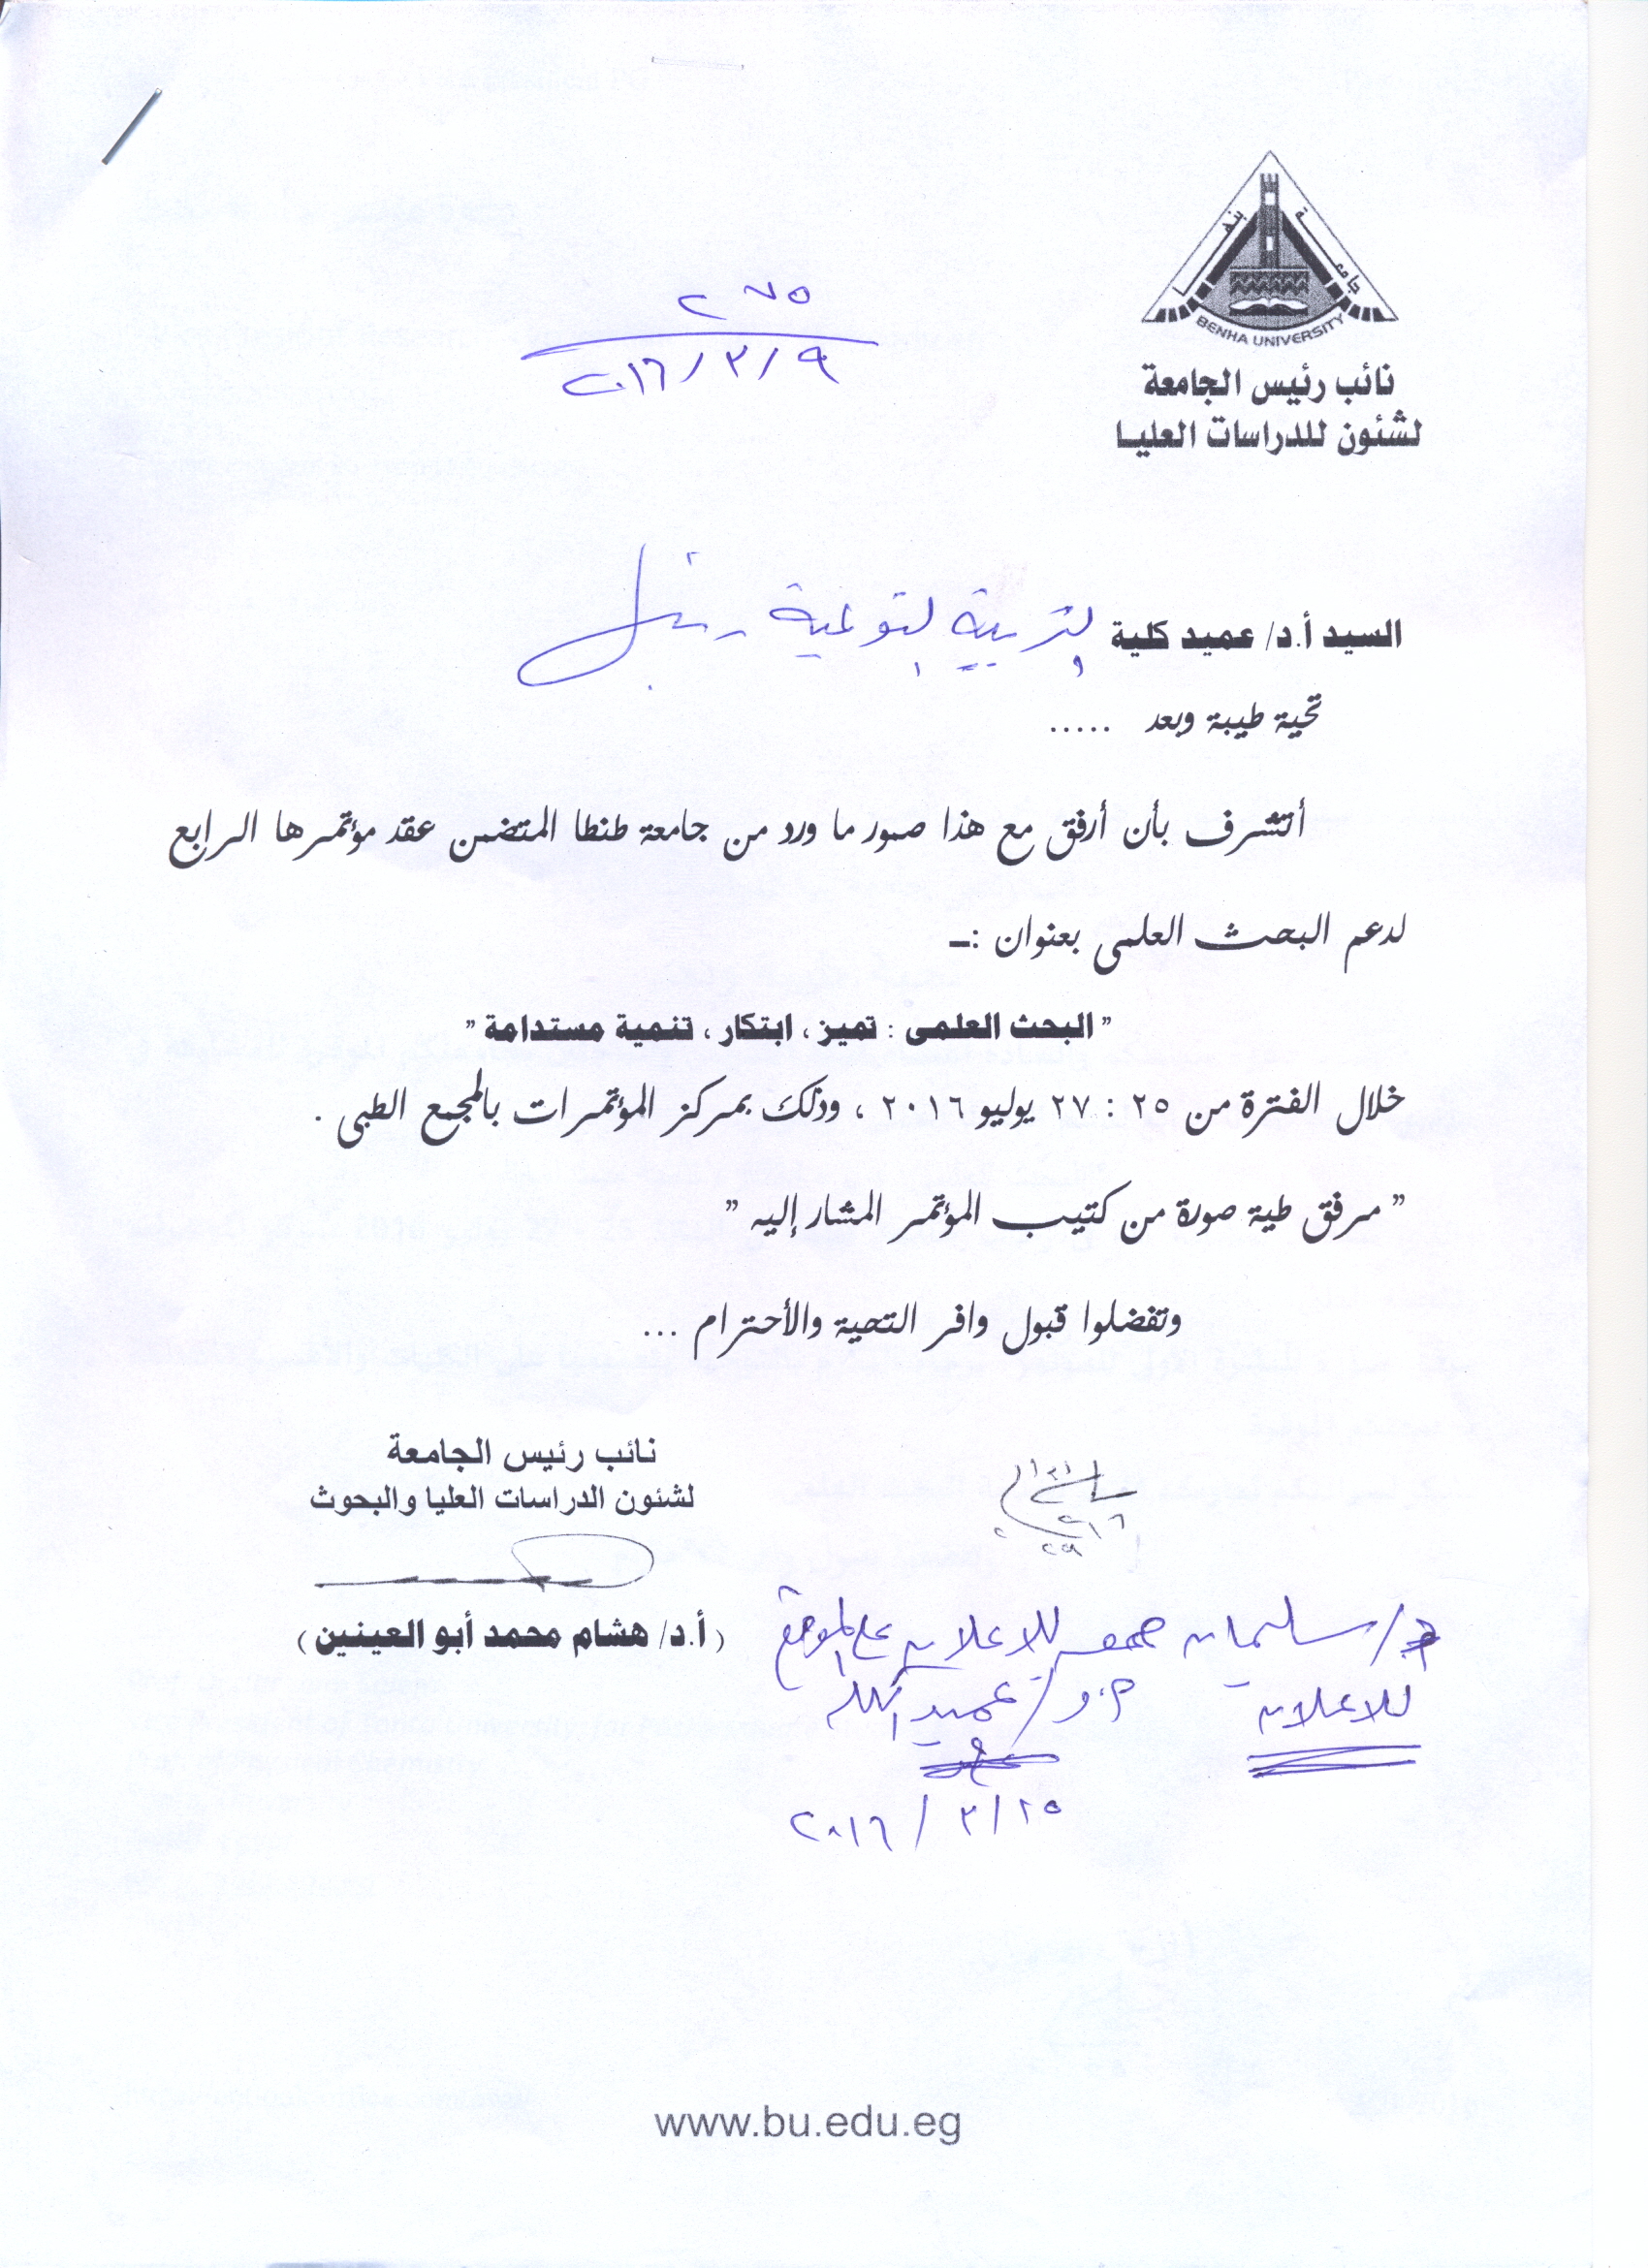 جامعة بنها
BENHA UNIVERSITY
نائب رئيس الجامعة
لشئون للدراسات العليا
٢٧٥
٢٠١٦/٣/٩
السيد أ.د/ عميد كلية التربية النوعية
تحية طيبة وبعد .....
أتشرف بأن أرفق مع هذا صور ما ورد من جامعة طنطا المتضمن عقد مؤتمرها الرابع
لدعم البحث العلمى بعنوان :ـ
" البحث العلمى : تميز ، ابتكار ، تنمية مستدامة "
خلال الفترة من ٢٥ : ٢٧ يوليو ٢٠١٦ ، وذلك بمركز المؤتمرات بالمجمع الطبى .
" مرفق طية صورة من كتيب المؤتمر المشار إليه "
وتفضلوا قبول وافر التحية والأحترام ...
نائب رئيس الجامعة
لشئون الدراسات العليا والبحوث
( أ.د/ هشام محمد أبو العينين )
د/ سليمان جمعه للاعلان على الموقع
للاعلان
عميد الكلية
٢٠١٦ / ٣ / ١٥
www.bu.edu.eg